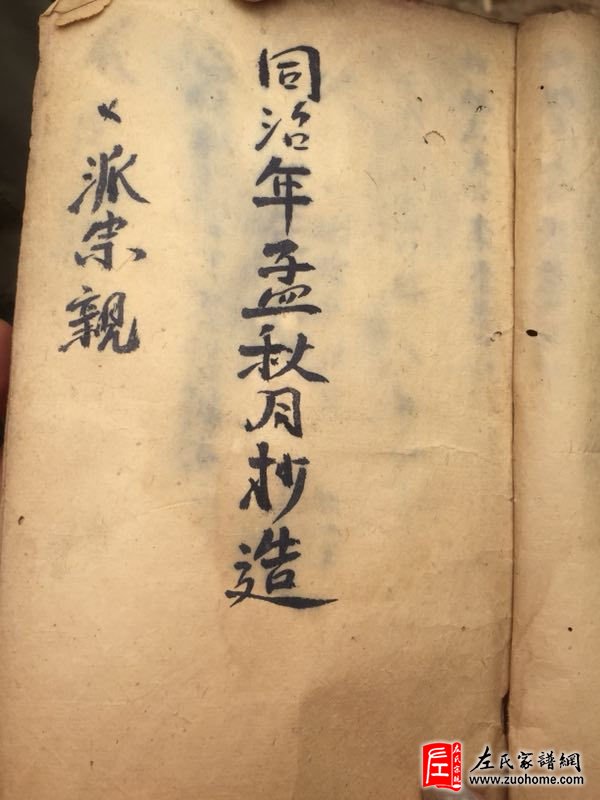 同治年孟秋月抄造
派宗親
左氏家譜網
www.zuohome.com